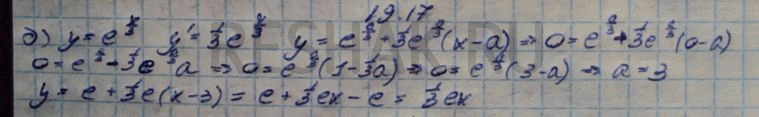 19.17
д) y = e^{x/3} y' = 1/3 e^{x/3} y = e^{a/3} + 1/3 e^{a/3} (x-a) ⇒ 0 = e^{a/3} + 1/3 e^{a/3} (0-a)
0 = e^{a/3} - 1/3 e^{a/3} a ⇒ 0 = e^{a/3} (1 - 1/3 a) ⇒ 0 = e^{a/3} (3-a) ⇒ a = 3
y = e + 1/3 e (x-3) = e + 1/3 ex - e = 1/3 ex
RESHAK.RU